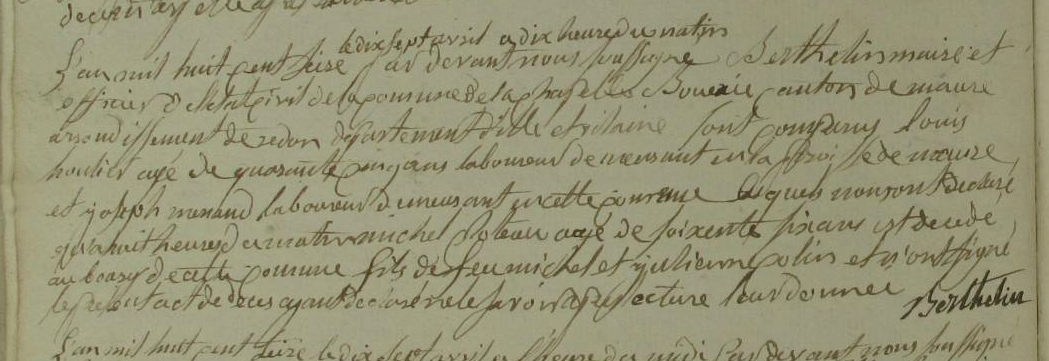 le dix sept avril a dix heures du matin
L'an mil huit cent seize par devant nous soussigné Berthelin maire et
officier de l'etat civil de la comune de la chapelle Bouexic canton de maure
arrondissement de redon departement d'ille et vilaine sont comparus louis
houlier agé de quarante cinq ans laboureur demeurant en la paroisse de maure
et joseph menand laboureur demeurant en cette comune lesquels nous ont declaré
qu'a huit heures du matin michel poteau agé de soixente six ans est decedé
au bourg de cette comune fils de feu michel et julienne colin et n'ont signé
le present act de deces ayant declaré ne le savoir apres lecture leur donnee Berthelin
L'an mil huit cent seize le dix sept avril a l'heure de midi par devant nous soussigné